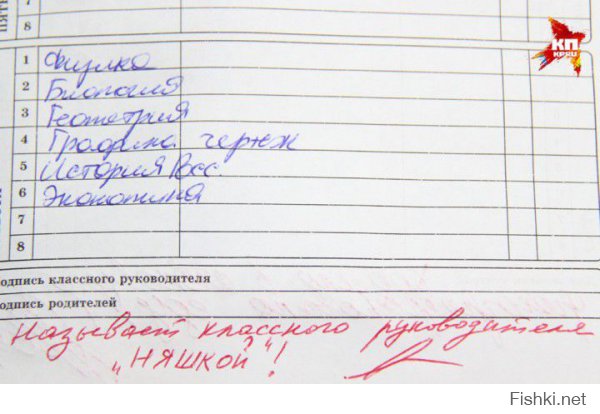 ПЯТН
7
8
КП
KP.RU
1 Физика
2 Биология
3 Геометрия
4 Графика чертеж
5 История Росс.
6 Экономика
7
8
одпись классного руководителя
одпись родителей
Называет классного руководителя
„НЯШКОЙ"!
Fishki.net